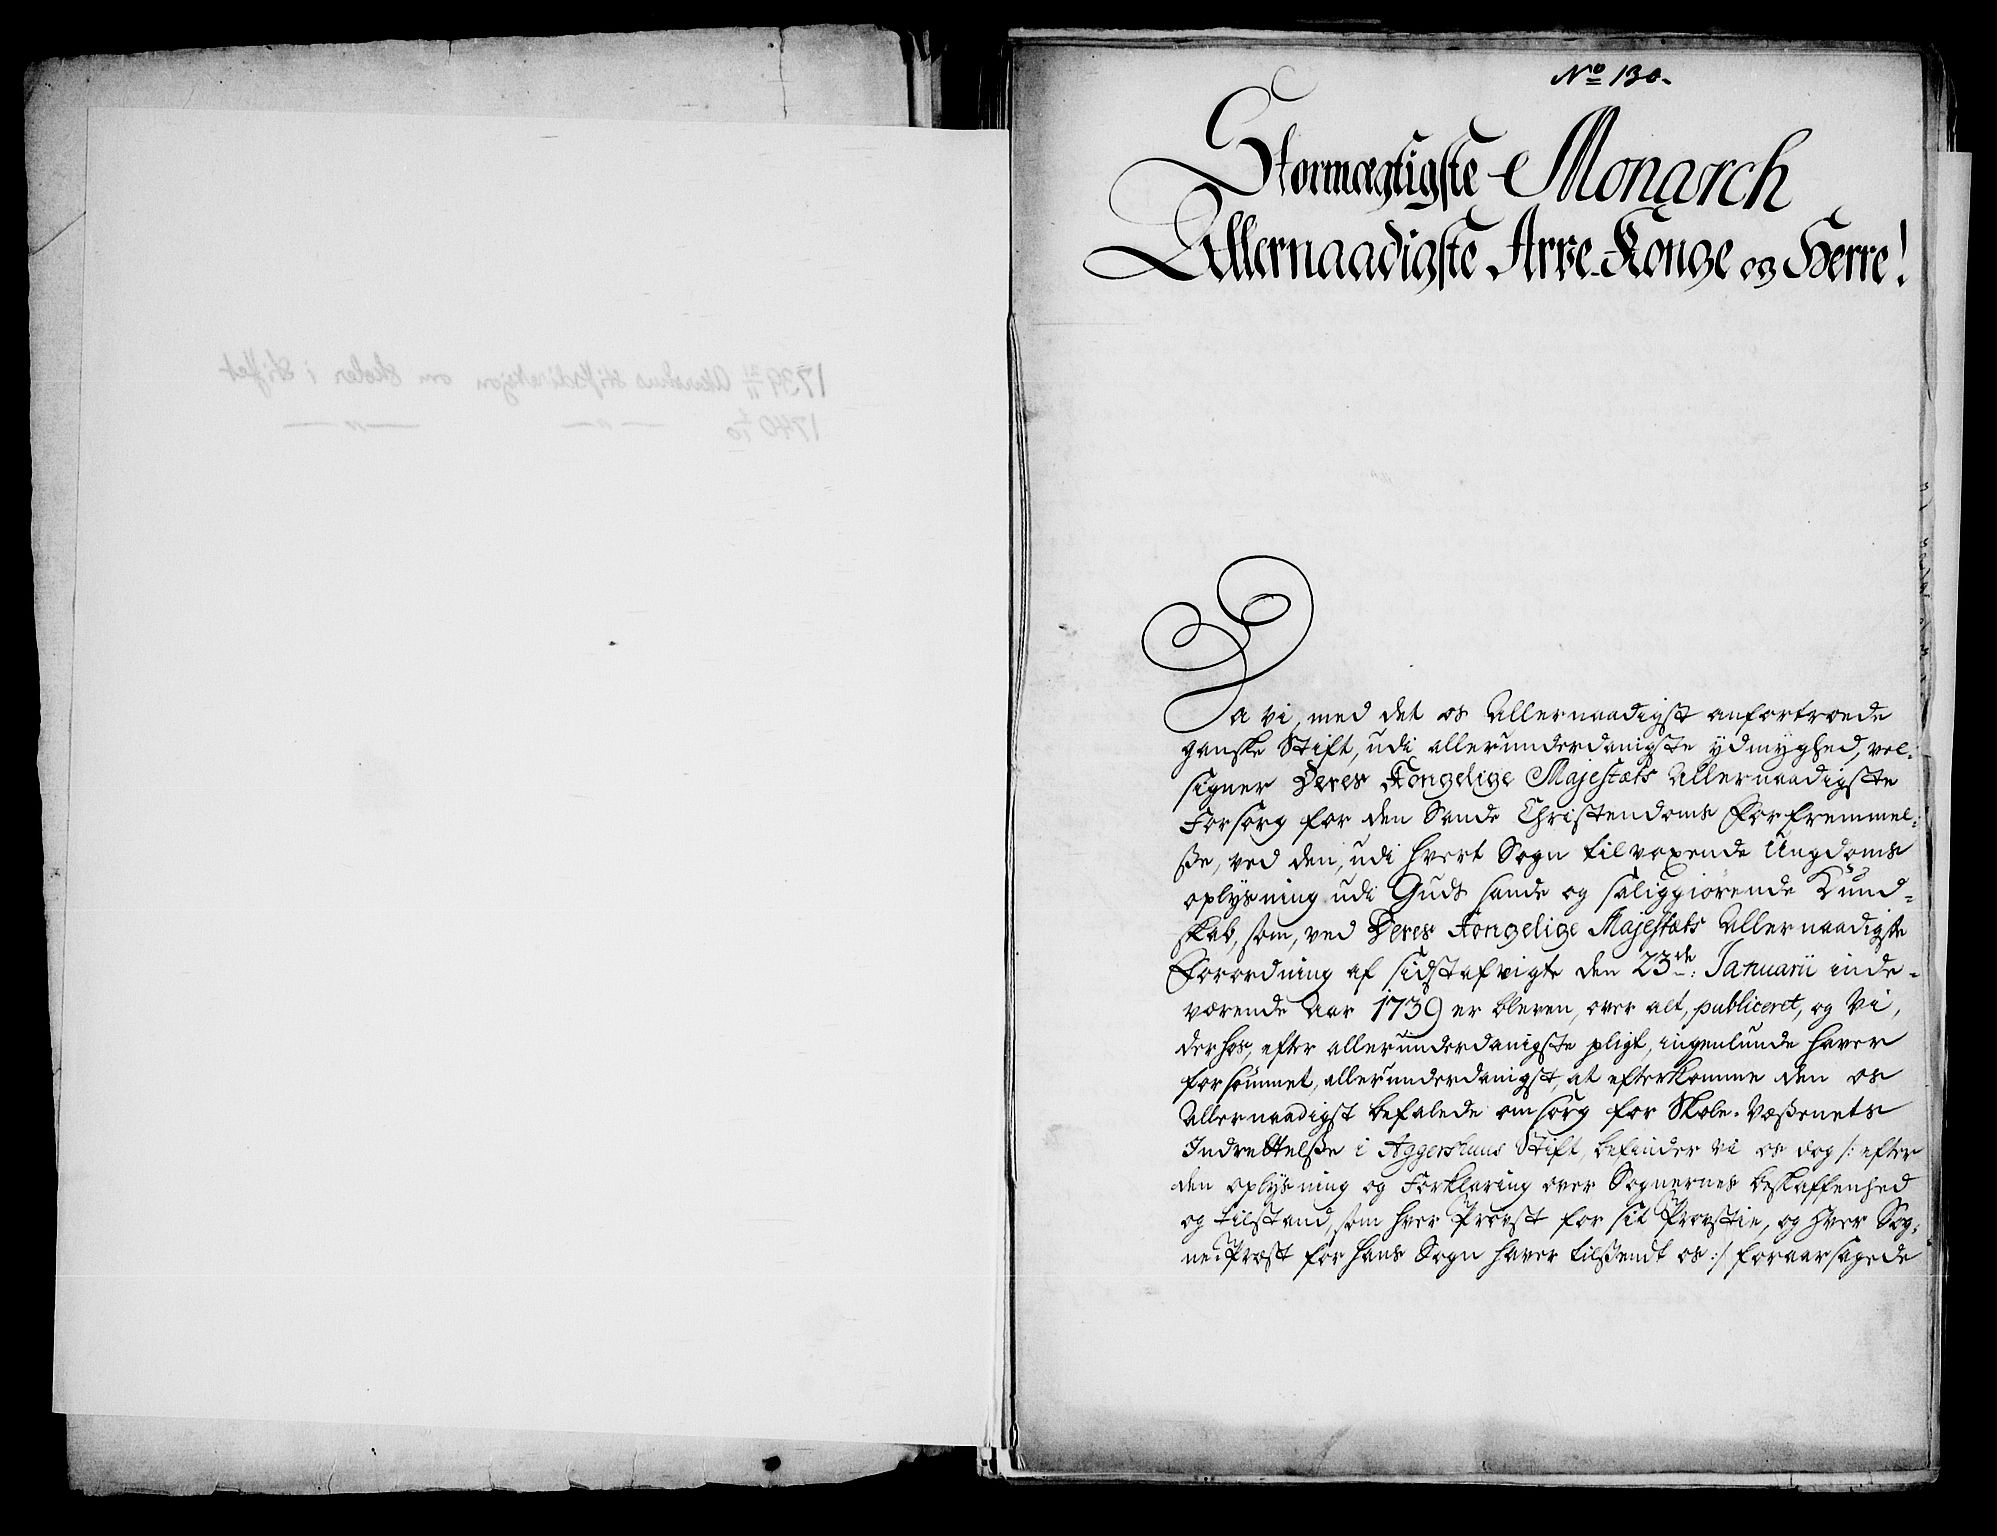 No 130.
Stormægtigste Monarch
Allernaadigste Arve-Konge og Herre!
Da vi, med det os Allernaadigst anfortroede
ganske Stift, udi allerunderdanigste ydmyghed, vel-
signer Deres Kongelige Majestæts Allernaadigste
Forsorg for den Sande Christendoms Forfremmel-
ße, ved den, udi hvert Sogn tilvoxende Ungdoms
oplysning udi Guds sande og saliggiørende Kund-
skab, som, ved Deres Kongelige Majestæts Allernaadigste
Forordning af sidstafvigte den 23de: Januarii inde-
værende Aar 1739 er bleven, over alt, publiceret, og Vi,
derhos, efter allerunderdanigste pligt, ingenlunde haver
forsømmet, allerunderdanigst, at efterkomme den os
Allernaadigst befalede omsorg for Skole-Væßenets
Indrettelße i Aggershuus Stift, befinder vi os dog /: efter
den oplysning og Forklaring over Sognernes beskaffenhed
og tilstand, som hver Provst for sit Provstie, og hver Sog-
ne-Præst for hans Sogn haver tilßendt os :/ foraarsagede
1739 Akershus stiftsdireksjon om skoler i stiftet
1740 — " — — " —